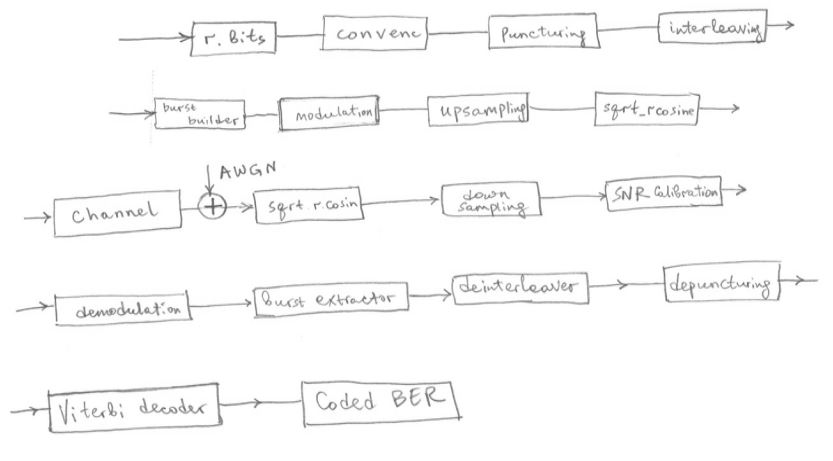 r. Bits convenc puncturing interleaving
burst builder modulation upsampling sqrt_rcosine
AWGN
channel + sqrt r.cosin down sampling SNR Calibration
demodulation Burst extractor deinterleaver depuncturing
Viterbi decoder Coded BER